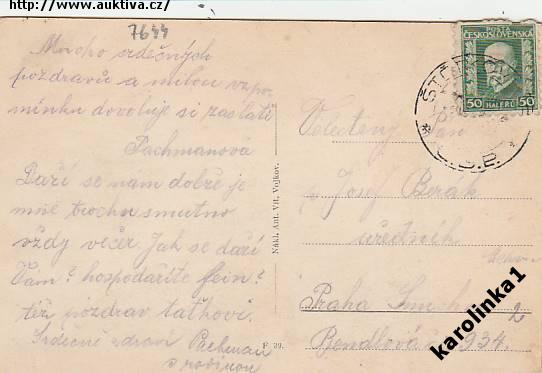 http://www.auktiva.cz/
7644
Mnoho srdečných
pozdravů a milou vzpo
mínku dovoluje si zaslati
Pachmanová
Daří se nám dobře je
mně trochu smutno
vždy večer Jak se daří
Vám? hospodaříte fein?
též pozdrav taťkovi.
Srdečně zdraví Pachman
s rodinou
Nákl. Ant. Vít, Vojkov.
F 29.
POŠTA
ČESKOSLOVENSKÁ
50 HALÉŘŮ 50
Č.S.P.
Velectěný Pan
p Josef Berak
úředník
Praha Smíchov
2
Bendlova č. 934.
karolinka1